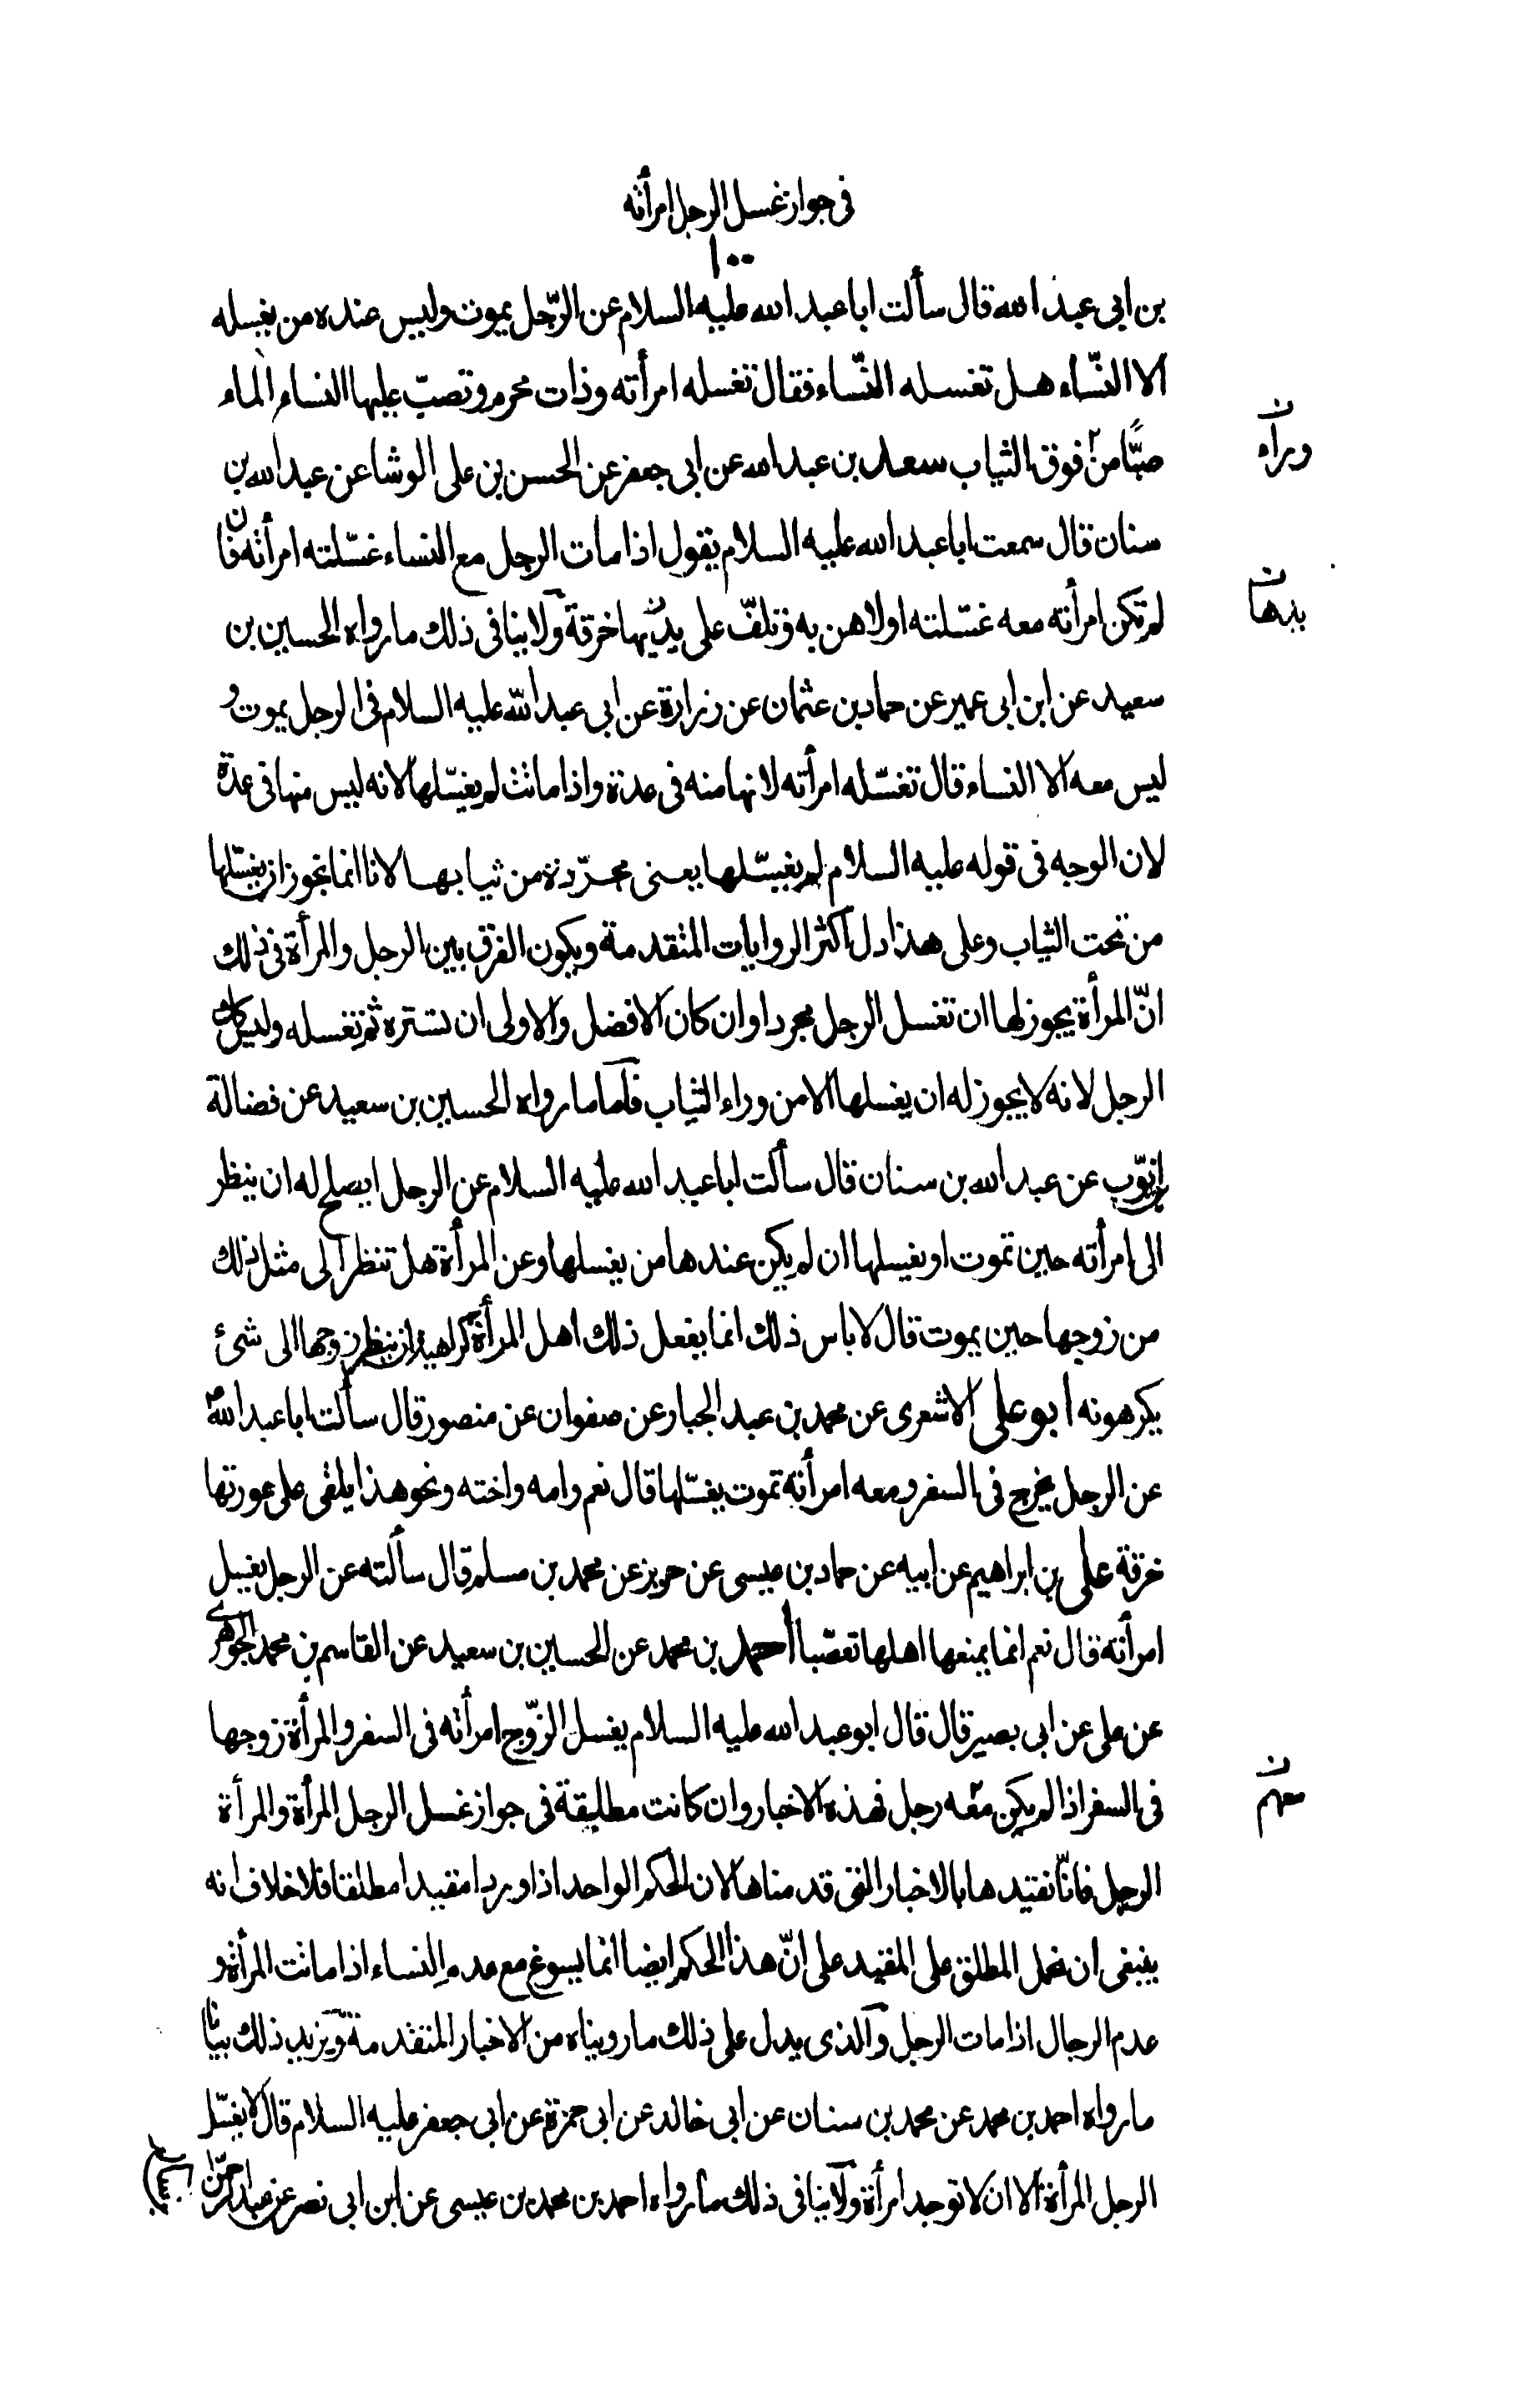 في جواز غسل الرجل امرأته
١٠٠
بن ابى عبد الله قال سألت ابا عبد الله عليه السلام عن الرّجل يموت وليس عنده من يغسله
الا النّساء هل تغسله النّساء فقال تغسله امرأته وذات محرم وتصبّ عليها النساء الماء
صبًّا من فوق الثياب سعد بن عبد الله عن ابى جعفر عن الحسن بن على الوشا عن عبد الله بن
وراه
سنان قال سمعت ابا عبد الله عليه السلام يقول اذا مات الرجل مع النساء غسّلته امرأته فان
لم تكن امرأته معه غسّلته اولاهن به وتلفّ على يديها خرقة ولا ينافى ذلك ما رواه الحسين بن
يدها
سعيد عن ابن ابى عمير عن حماد بن عثمان عن زرارة عن ابى عبد الله عليه السلام فى الرجل يموت و
ليس معه الا النساء قال تغسّله امرأته لانها منه فى عدة واذا ماتت لم يغسّلها لانه ليس منها فى عدة
لان الوجه فى قوله عليه السلام لم يغسّلها يعنى مجرّدة من ثيابها لانا انما نجوز ان يغسّلها
من تحت الثياب وعلى هذا دل اكثر الروايات المتقدمة ويكون الفرق بين الرجل والمرأة فى ذلك
انّ المرأة يجوز لها ان تغسل الرجل مجردا وان كان الافضل والاولى ان تستره ثم تغسله وليس كك
الرجل لانه لا يجوز له ان يغسلها الا من وراء الثياب فاما ما رواه الحسين بن سعيد عن فضالة
بن ايّوب عن عبد الله بن سنان قال سألت ابا عبد الله عليه السلام عن الرجل ايصلح له ان ينظر
الى امرأته حين تموت او يغسلها ان لم يكن عندها من يغسلها وعن المرأة هل تنظر الى مثل ذلك
من زوجها حين يموت قال لا باس ذلك انما يفعل ذلك اهل المرأة كراهية ان ينظر زوجها الى شئ
يكرهونه ابو على الاشعرى عن محمد بن عبد الجبار عن صفوان عن منصور قال سألت ابا عبد الله
عن الرجل يخرج فى السفر ومعه امرأته تموت يغسّلها قال نعم وامه واخته ونحو هذا يلقى على عورتها
خرقة على بن ابراهيم عن ابيه عن حماد بن عيسى عن حريز عن محمد بن مسلم قال سألته عن الرجل يغسل
امرأته قال نعم انما يمنعها اهلها تعصّبا احمد بن محمد عن الحسين بن سعيد عن القاسم بن محمد الجوهرى
عن على عن ابى بصير قال قال ابو عبد الله عليه السلام يغسل الزّوج امرأته فى السفر والمرأة زوجها
فى السفر اذا لم يكن معه رجل فهذه الاخبار وان كانت مطابقة فى جواز غسل الرجل المرأة والمرأة
معهم
الرجل فانّا نقيّدها بالاخبار التى قدمناها لان الحكم الواحد اذا ورد مقيدا مطلقا فلا خلاف انه
ينبغى ان نحمل المطلق على المقيد على انّ هذا الحكم ايضا انما يسوغ مع عدم النساء اذا ماتت المرأة و
عدم الرجال اذا مات الرجل والذى يدل على ذلك ما رويناه من الاخبار المتقدمة ويزيد ذلك بيانا
ما رواه احمد بن محمد عن محمد بن سنان عن ابى خالد عن ابى حمزة عن ابى جعفر عليه السلام قال لا يغسّل
الرجل المرأة الا ان لا توجد امرأة ولا ينافى ذلك ما رواه احمد بن محمد بن عيسى عن ابن ابى نصر عن عبد الرحمن